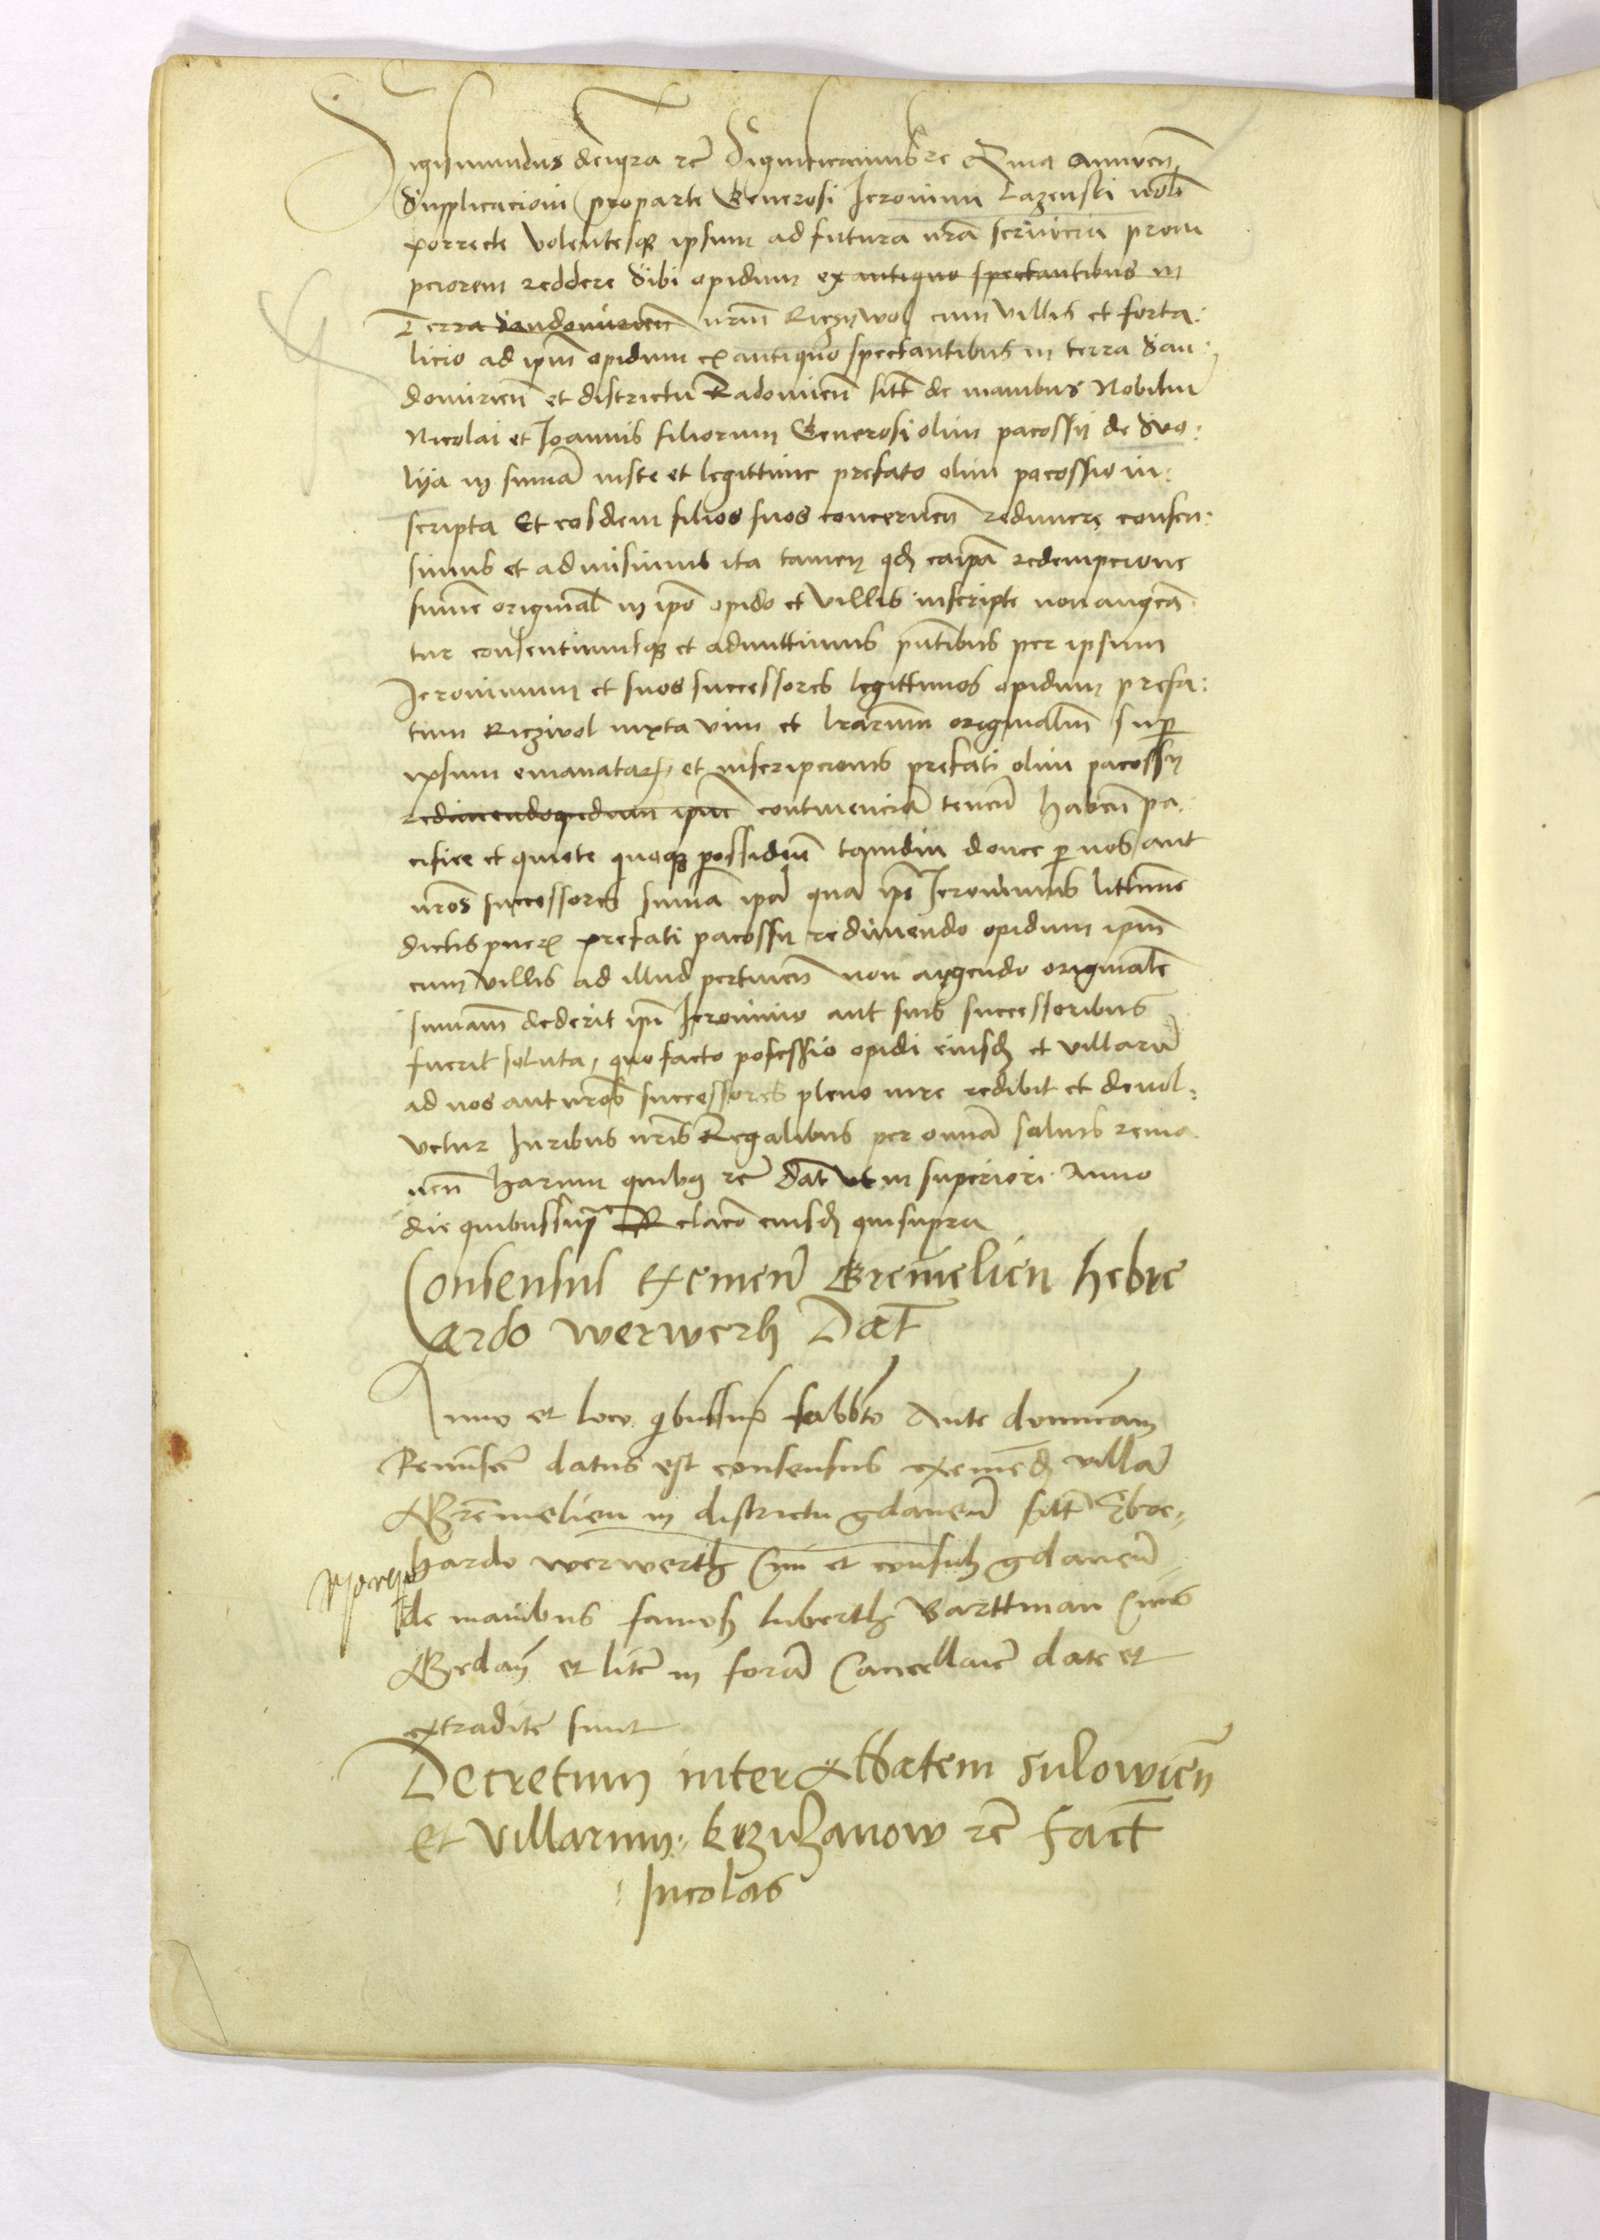 Sigismundus dei gra rc̄ Significamus rc̄ Quia annuen̄
Supplicacioni pro parte Generosi Ieronimi Lazenski nobis
porrecte volentesq̃ ipsum ad futura nrā servicia prom
pciorem reddere Sibi opidum ex antiquo spectantibus in
Terra Sandomirien̄ nrm̄ Riczywol cum villis et forta:
licio ad ipm̄ opidum ex antiquo spectantibus in terra San:
domirien̄ et districtu Radomien̄ sitt̄ de manibus Nobiliū
Nicolai et Joannis filiorum Generosi olim pacossij de
in sum̄a iuste et legittime prefato olim pacossio in:
scripta Et eosdem filios suos concernen̄ redimere consen:
simus et admisimus ita tamen qd̄ ea ip̄a redempcione
sum̄e original̄ in ip̄o opido et villis inscripte non augea
tur consentimusq̃ et admittimus pn̄tibus per ipsum
Ieronimum et suos successores legittimos opidum prefa:
tum Riczivol iuxta vim et lrarum originalm̄ sup̄
ipsum emanatar̄ et inscripcionis prefati olim pacossij
redimendo opidum ipm̄ continenciā tenen̄ haben̄ pa
cifice et quiete quoq̃ possiden̄ tamdiu donec p nos aut
nros̄ successores sum̄a ip̄a quā ip̄e Ieronimus
dictis puer̄ prefati pacossij redimendo opidum ipm̄
cum villis ad illud pertinen̄ non augendo originalē
summam̄ dederit ip̄i Ieronimo aut suis successoribus
fuerit soluta, quo facto possessio opidi eiusd̄ et villarū
ad nos aut nros̄ successores pleno iure redibit et devol:
vetur Iuribus nris̄ Regalibus per omnā salvis rema
nen̄ harum quibus rc̄ dat̄ ut in superiori Anno
die quibus supra Relacō eiusd̄ qui supra
Consensus Exemen̄ Gremelien hebre
ardo werwerh Dat̄
Anno et loco quibus supra sabbto Ante dominicam
Reminiscē datus est consensus eximēd̄ villā
Gremmelien in districtu gdanen̄ sitt̄ Ebre:
hardo werwerth Civi et consuli gdanen̄
de manibus famosi luberth Barttman Civis
Gedan̄ et litē in formā Cancellarie date et
extradite sunt
Decretum inter Abbatem Sulowien̄
et villarum krzizanow rc̄ fact̄
Incolas